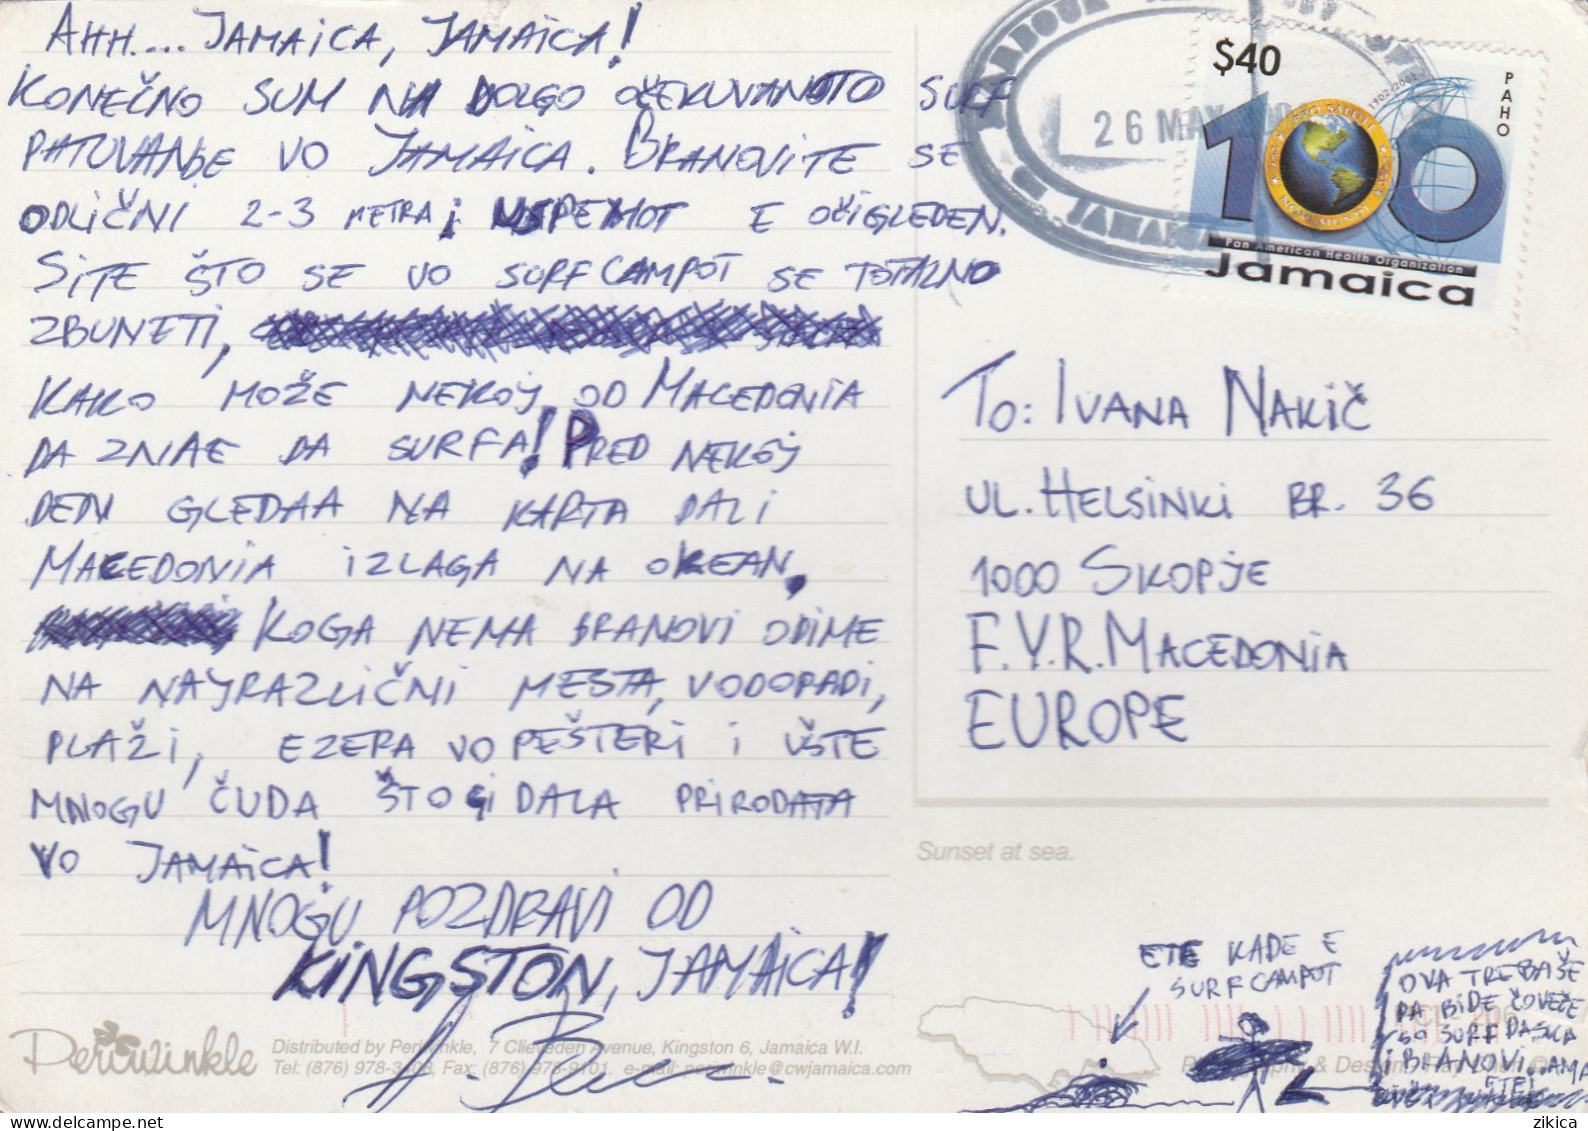 AHH.... JAMAICA, JAMAICA!
KONEČNO SUM NA DOLGO OČEKUVANOTO SURF
PATUVANJE VO JAMAICA. BRANOVITE SE
ODLIČNI 2-3 METRA, USPEHOT E OČIGLEDEN.
SITE ŠTO SE VO SURFCAMPOT SE TOTALNO
ZBUNETI,
KAKO MOŽE NEKOJ OD MACEDONIA
DA ZNAE DA SURFA! PRED NEKOJ
DEN GLEDAA NA KARTA DALI
MACEDONIA IZLAGA NA OKEAN.
KOGA NEMA BRANOVI ODIME
NA NAJRAZLIČNI MESTA, VODOPADI,
PLAŽI, EZERA VO PEŠTERI I UŠTE
MNOGU ČUDA ŠTO GI DALA PRIRODATA
VO JAMAICA!
MNOGU POZDRAVI OD
KINGSTON, JAMAICA!
Periwinkle
Distributed by Periwinkle, 7 Clieveden Avenue, Kingston 6, Jamaica W.I.
Tel: (876) 978-3403, Fax: (876) 978-9101. e-mail: periwinkle@cwjamaica.com
HARBOUR
26 MAY
JAMAICA
$40
100
1902-2002
PAHO
PRO SALUTE
NOVI MUNDI
Pan American Health Organization
Jamaica
TO: IVANA NAKIČ
UL. HELSINKI BR. 36
1000 SKOPJE
F.Y.R. MACEDONIA
EUROPE
Sunset at sea.
ETE KADE E
SURFCAMPOT
OVA TREBAŠE
DA BIDE ČOVEČE
SO SURF DASKA
I BRANOVI.. AMA
zikica
www.delcampe.net